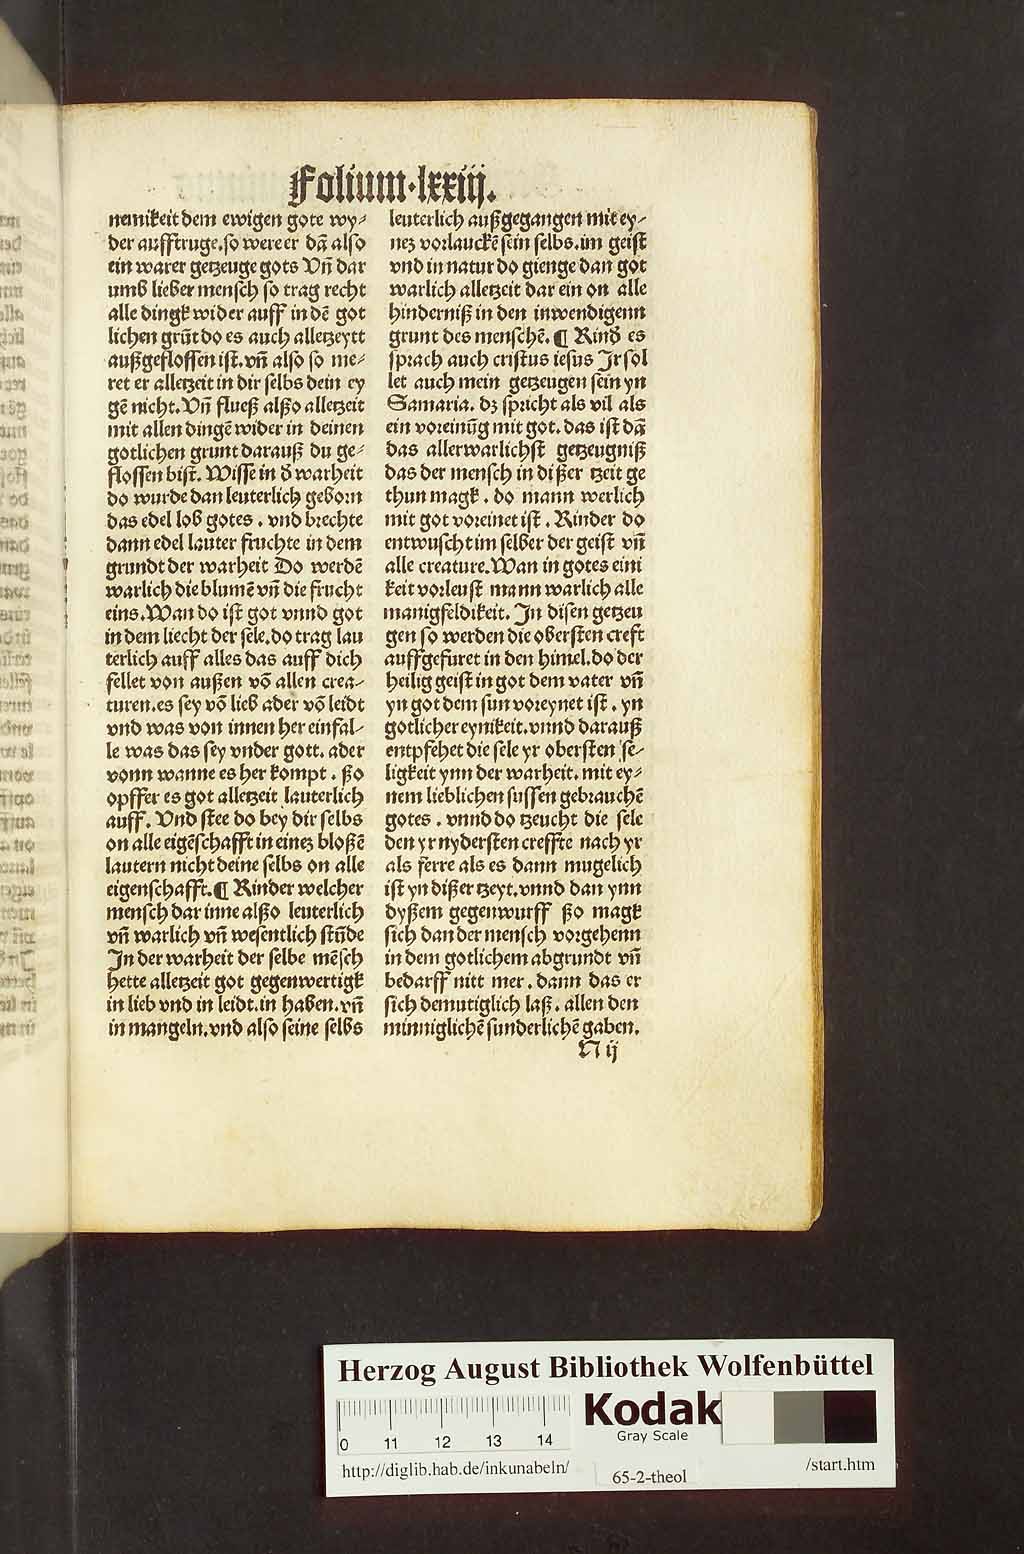 Folium·lxxiij.
nemikeit dem ewigen gote wy⸗
der aufftruge.so were er dā also
ein warer getzeuge gots Vn̄ dar
umb lieber mensch so trag recht
alle dingk wider auff in dē got
lichen grūt do es auch alletzeytt
außgeflossen ist.vn̄ also so me⸗
ret er alletzeit in dir selbs dein ey
gē nicht.Vn̄ flueß alßo alletzeit
mit allen dingē wider in deinen
gotlichen grunt darauß du ge⸗
flossen bist. Wisse in d̄ warheit
do wurde dan leuterlich geborn
das edel lob gotes . vnd brechte
dann edel lauter fruchte in dem
grundt der warheit Do werdē
warlich die blumē vn̄ die frucht
eins.Wan do ist got vnnd got
in dem liecht der sele.do trag lau
terlich auff alles das auff dich
fellet von außen vō allen crea⸗
turen.es sey vō lieb ader vō leidt
vnd was von innen her einfal⸗
le was das sey vnder gott. ader
vonn wanne es her kompt . ßo
opffer es got alletzeit lauterlich
auff. Vnd stee do bey dir selbs
on alle eigēschafft in eineʒ bloßē
lautern nicht deine selbs on alle
eigenschafft.¶ Kinder welcher
mensch dar inne alßo leuterlich
vn̄ warlich vn̄ wesentlich stūde
In der warheit der selbe mēsch
hette alletzeit got gegenwertigk
in lieb vnd in leidt.in haben.vn̄
in mangeln.vnd also seine selbs
leuterlich außgegangen mit ey⸗
neʒ vorlauckē sein selbs.im geist
vnd in natur do gienge dan got
warlich alletzeit dar ein on alle
hinderniß in den inwendigenn
grunt des menschē.¶ Kind̄ es
sprach auch cristus iesus Jr sol
let auch mein getzeugen sein yn
Samaria. dʒ spricht als vil als
ein voreinūg mit got. das ist dā
das allerwarlichst getzeugniß
das der mensch in dißer tzeit ge
thun magk . do mann werlich
mit got voreinet ist . Kinder do
entwuscht im selber der geist vn̄
alle creature.Wan in gotes eini
keit vorleust mann warlich alle
manigfeldikeit. Jn disen getzeu
gen so werden die obersten creft
auffgefuret in den himel.do der
heilig geist in got dem vater vn̄
yn got dem sun voreynet ist . yn
gotlicher eynikeit.vnnd darauß
entpfehet die sele yr obersten se⸗
ligkeit ynn der warheit. mit ey⸗
nem lieblichen sussen gebrauchē
gotes . vnnd do tzeucht die sele
den yr nydersten creffte nach yr
als ferre als es dann mugelich
ist yn dißer tzeyt.vnnd dan ynn
dyßem gegenwurff ßo magk
sich dan der mensch vorgehenn
in dem gotlichem abgrundt vn̄
bedarff nitt mer . dann das er
sich demutiglich laß. allen den
minniglichē sunderlichē gaben.
N ij
Herzog August Bibliothek Wolfenbüttel
Kodak
Gray Scale
0 11 12 13 14
http://diglib.hab.de/inkunabeln/
65-2-theol
/start.htm